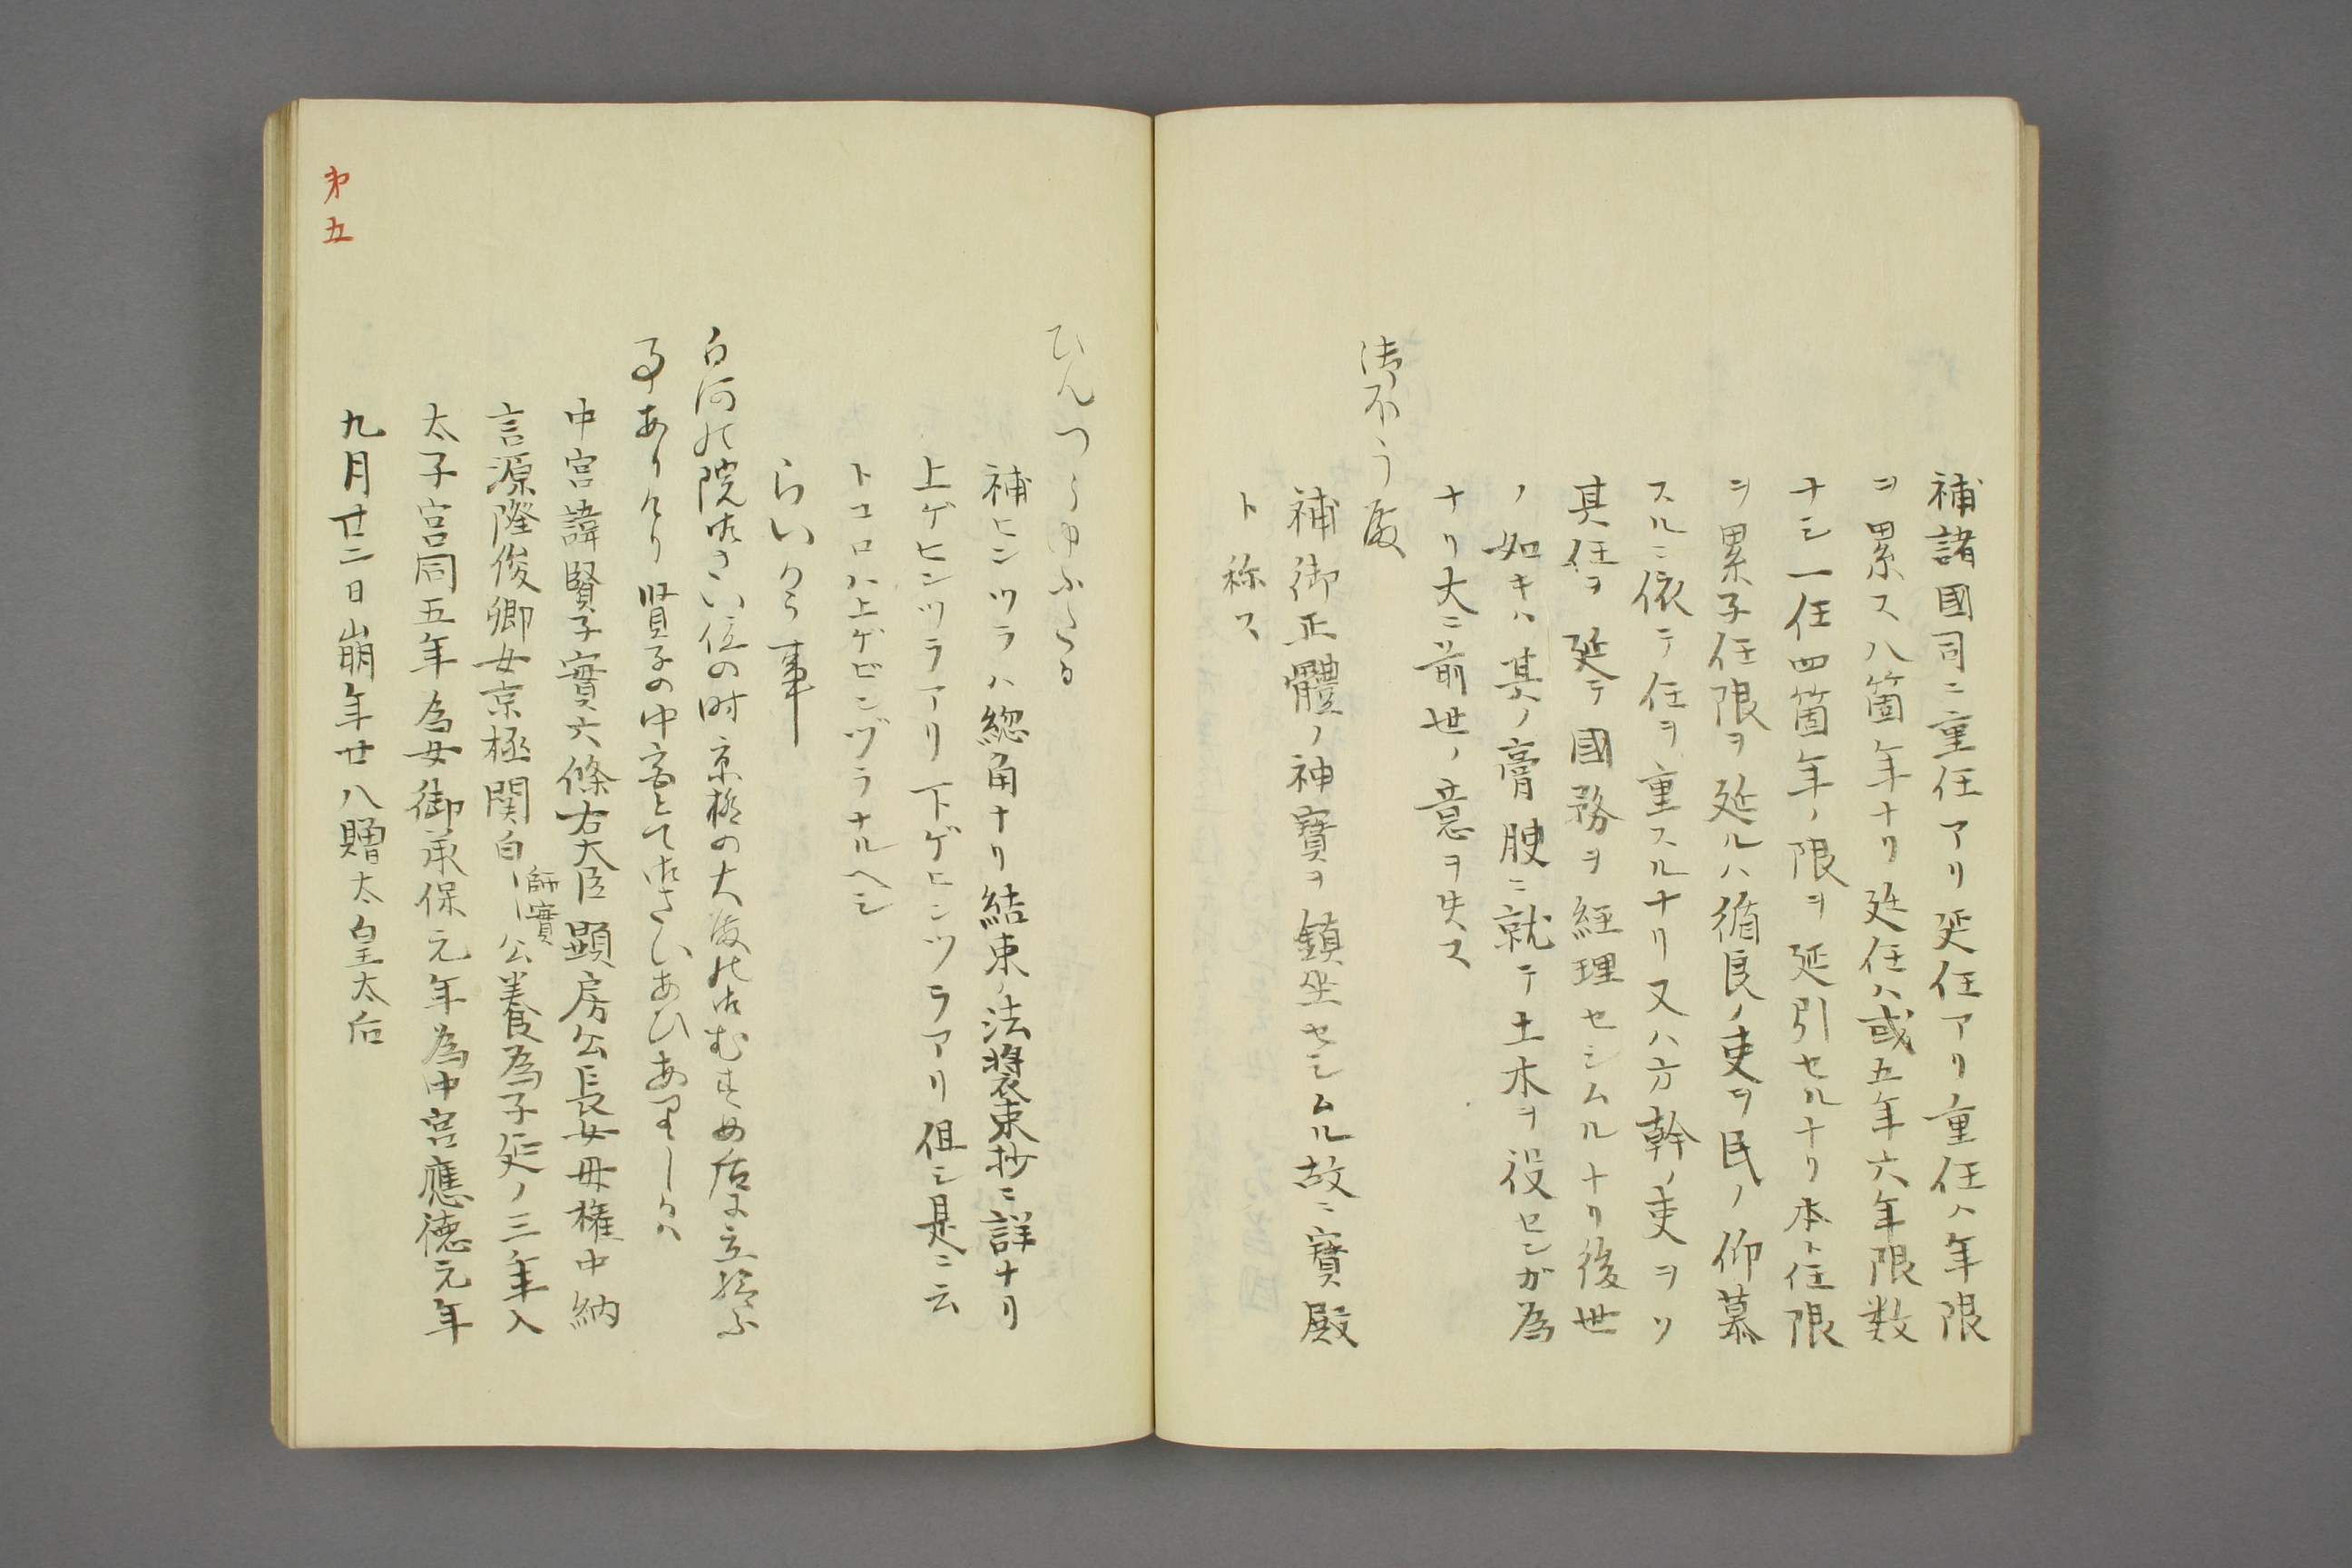 補諸國司ニ重任アリ延任アリ重任ハ年限
ヲ累ス八箇年ナリ延任ハ或五年六年限数
ナシ一任四箇年ノ限ヲ延引セルナリ本ト任限
ヲ累子任限ヲ延ルハ循良ノ吏ヲ民ノ仰慕
スルニ依テ任ヲ重スルナリ又ハ方幹ノ吏ヲソ
其任ヲ延テ國務ヲ経理セシムルナリ後世
ノ如キハ其ノ膏腴ニ就テ土木ヲ役センガ為
ナリ大ニ前世ノ意ヲ失ス
補御正體ノ神寶ヲ鎮坐セシムル故ニ寶殿
ト称ス
ひんつらゆふたる
補ヒンツラハ総角ナリ結束ノ法装束抄ニ詳ナリ
上ゲヒンツラアリ下ゲヒンツラアリ但シ是ニ云
トコロハ上ゲビンヅラナルヘシ
らいかう事
白河の院御さい位の時京極の大殿の御むすめ后に立給ふ
事ありけり賢子の中宮とて御さいあひありしかハ
中宮諱賢子實六條右大臣顕房公長女母権中納
言源隆俊卿女京極関白師實公養為子延ノ三年入
太子宮同五年為女御承保元年為中宮應徳元年
九月廿二日崩年廿八贈太皇太后
第五